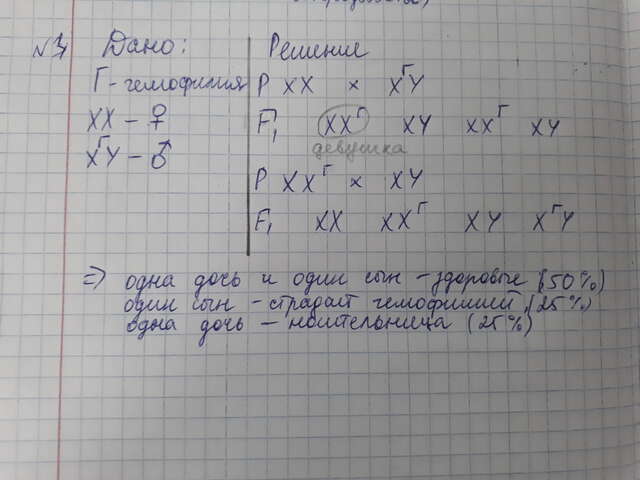 N3
Дано:
Г - гемофилия
XX - ♀
XᴦY - ♂
Решение
P XX × XᴦY
F₁ XXᴦ XY XXᴦ XY
девушка
P XXᴦ × XY
F₁ XX XXᴦ XY XᴦY
=> одна дочь и один сын - здоровые (50%)
один сын - страдает гемофилией (25%)
одна дочь - носительница (25%)